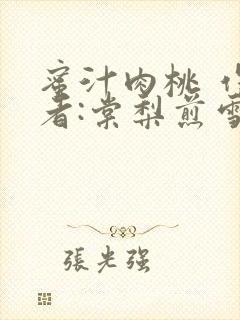 蜜汁肉桃 作
者:棠梨煎雪
張光强